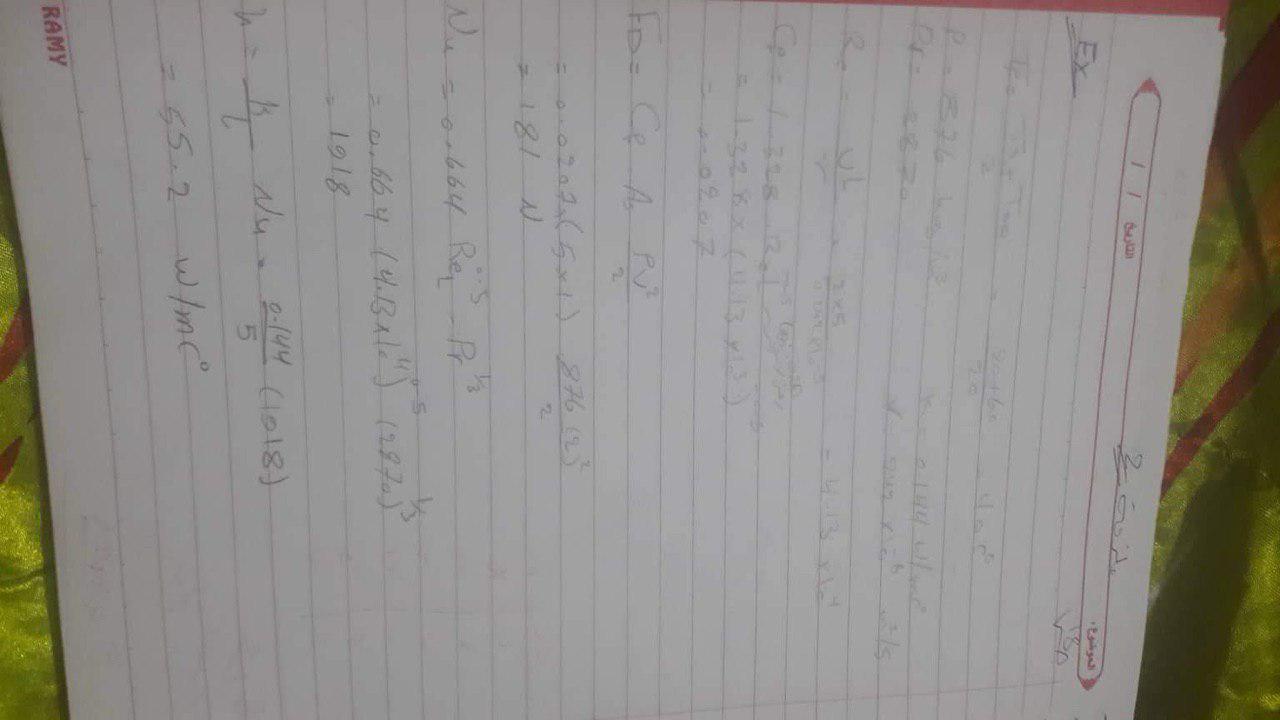 التاريخ / /
ملزمة 2
الموضوع:
Ex
Tf = Ts + T∞ / 2 = 20+60 / 20 = 40 C°
P = 876 kg/m³ 0.144 W/mC°
Pr = 2870 242 x10⁻⁶ m²/s
Re = VL = 2x5 = 4.13 x10⁴
Cf = 1.328
= 1.328 x (4.13 x10³)
= 0.0207
FD = Cf As PV² / 2
= 0.0207x(5x1) 876(2)² / 2
= 181 N
Nu = 0.664 ReL^0.5 - Pr^1/3
= 0.664 (4.13x10⁴)^0.5 (2870)^1/3
= 1918
h = k / L Nu = 0.144 / 5 (1918)
= 55.2 W/mC°
RAMY